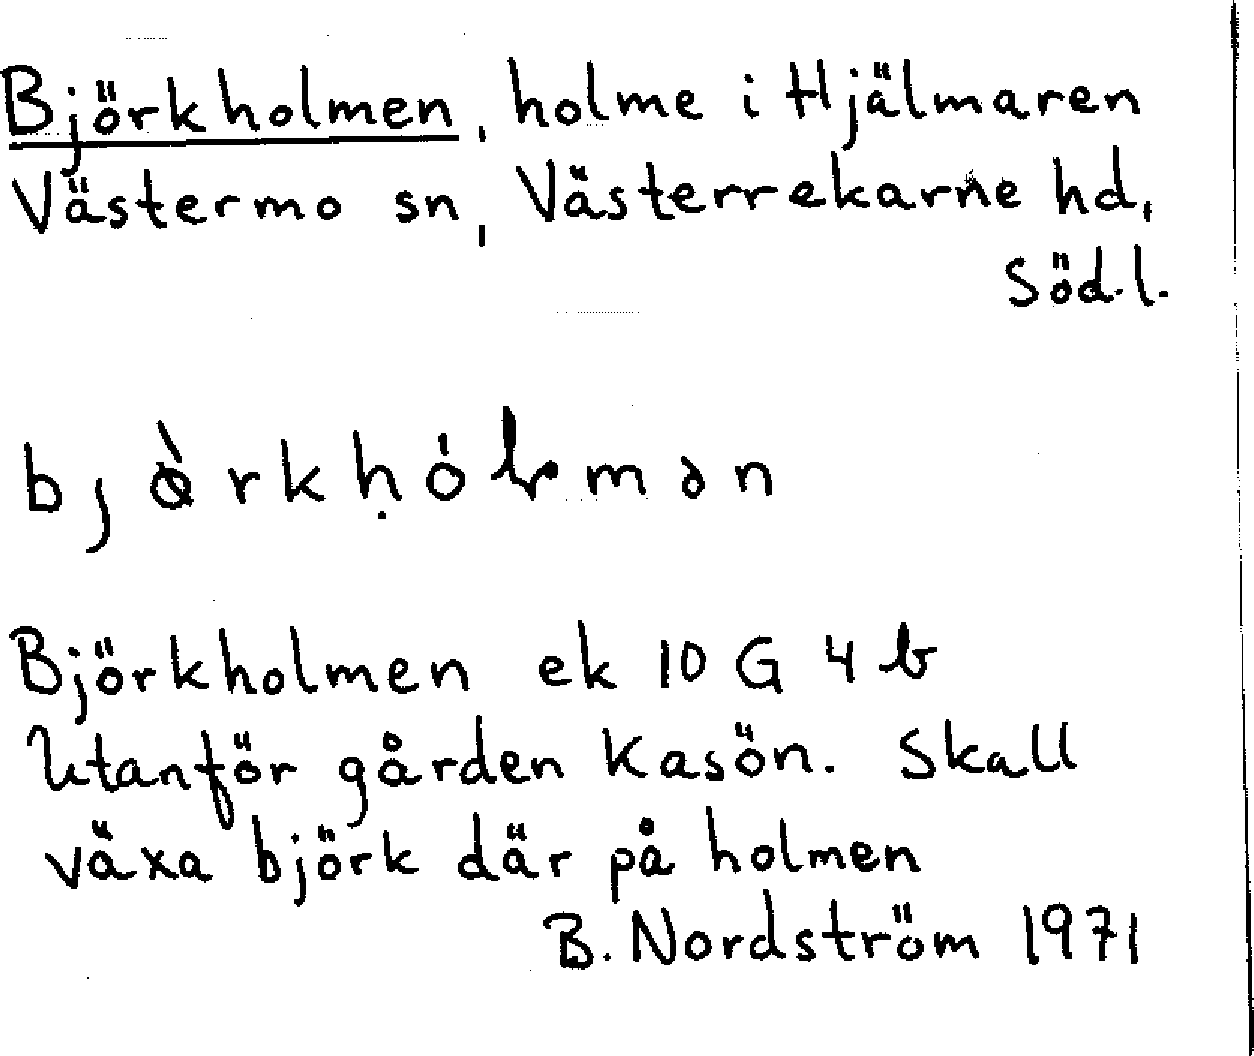 Björkholmen, holme i Hjälmaren
Västermo sn, Västerrekarne hd,
Söd.l.
Björkholmen ek 10 G 4 b
Utanför gården Kasön. Skall
växa björk där på holmen
B. Nordström 1971